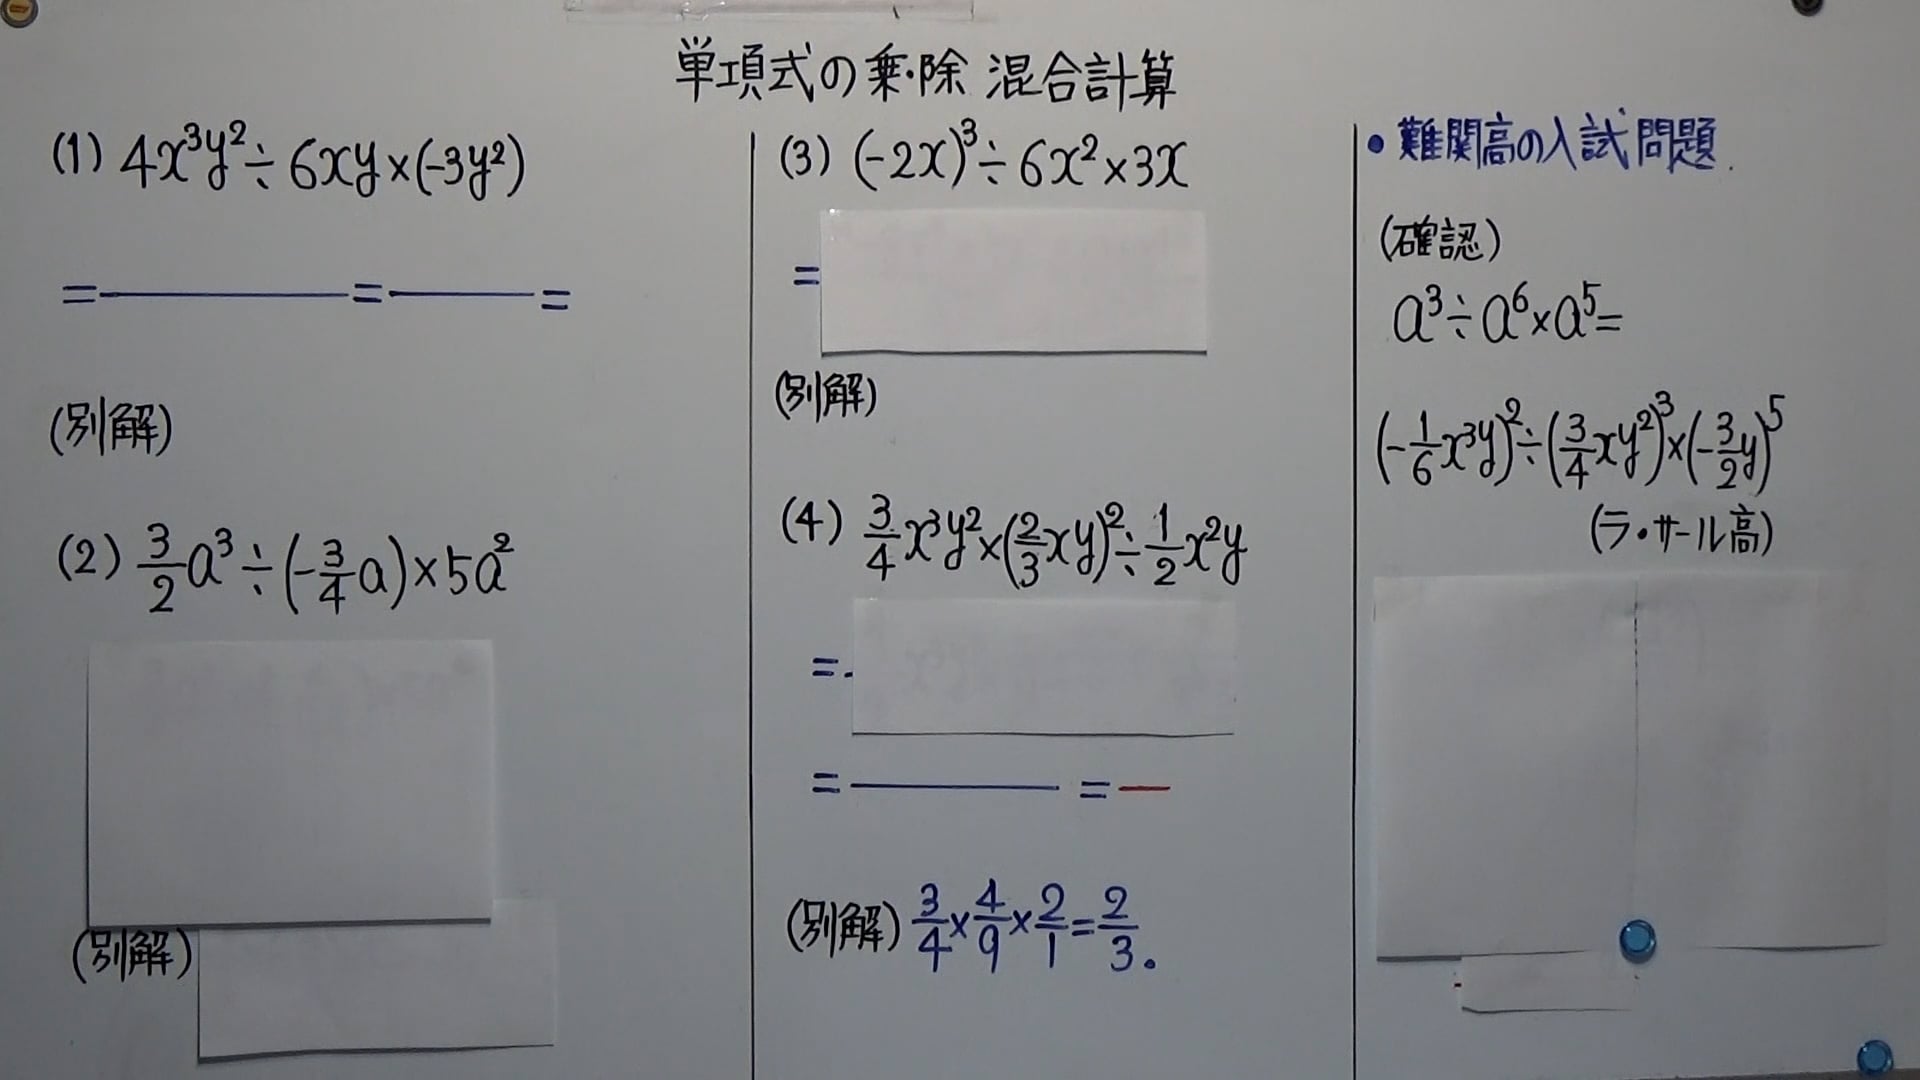 単項式の乗・除 混合計算
(1) 4x³y² ÷ 6xy × (-3y²)
= ― = ― =
(別解)
(2) 3/2 a³ ÷ (-3/4 a) × 5a²
(別解)
(3) (-2x)³ ÷ 6x² × 3x
=
(別解)
(4) 3/4 x³y² × (2/3 xy)² ÷ 1/2 x²y
=
= ― = ―
(別解) 3/4 × 4/9 × 2/1 = 2/3.
• 難関高の入試問題.
(確認)
a³ ÷ a⁶ × a⁵ =
(-1/6 x³y)² ÷ (3/4 xy²)³ × (-3/2 y)⁵
(ラ・サール高)